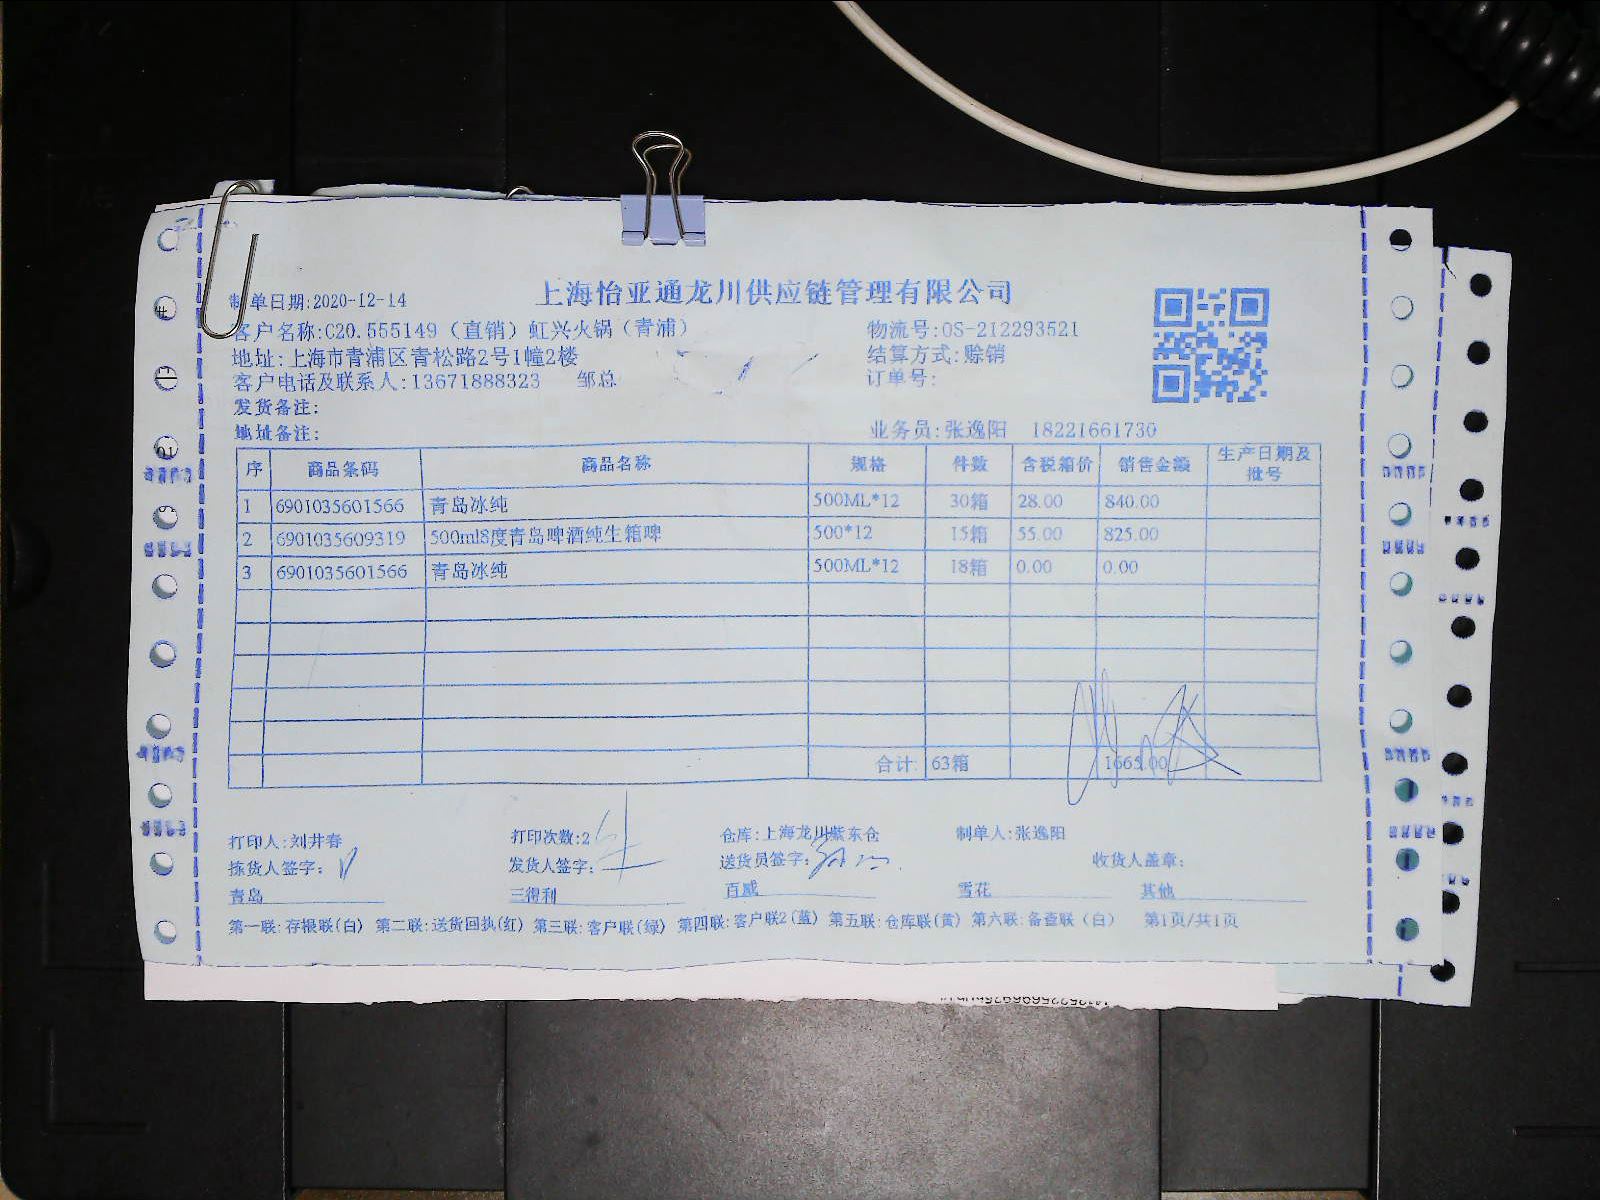 上海怡亚通龙川供应链管理有限公司
制单日期:2020-12-14
客户名称:C20.555149（直销）虹兴火锅（青浦） 物流号:OS-212293521
地址:上海市青浦区青松路2号1幢2楼 结算方式:赊销
客户电话及联系人:13671888323 邹总 订单号:
发货备注:
地址备注: 业务员:张逸阳 18221661730
序 商品条码 商品名称 规格 件数 含税箱价 销售金额 生产日期及批号
1 6901035601566 青岛冰纯 500ML*12 30箱 28.00 840.00
2 6901035609319 500ml8度青岛啤酒纯生箱啤 500*12 15箱 55.00 825.00
3 6901035601566 青岛冰纯 500ML*12 18箱 0.00 0.00
合计: 63箱 1665.00
打印人:刘井春 打印次数:2 仓库:上海龙川紫东仓 制单人:张逸阳
拣货人签字: 发货人签字: 送货员签字: 收货人盖章:
青岛 三得利 百威 雪花 其他
第一联:存根联(白) 第二联:送货回执(红) 第三联:客户联(绿) 第四联:客户联2(蓝) 第五联:仓库联(黄) 第六联:备查联（白） 第1页/共1页